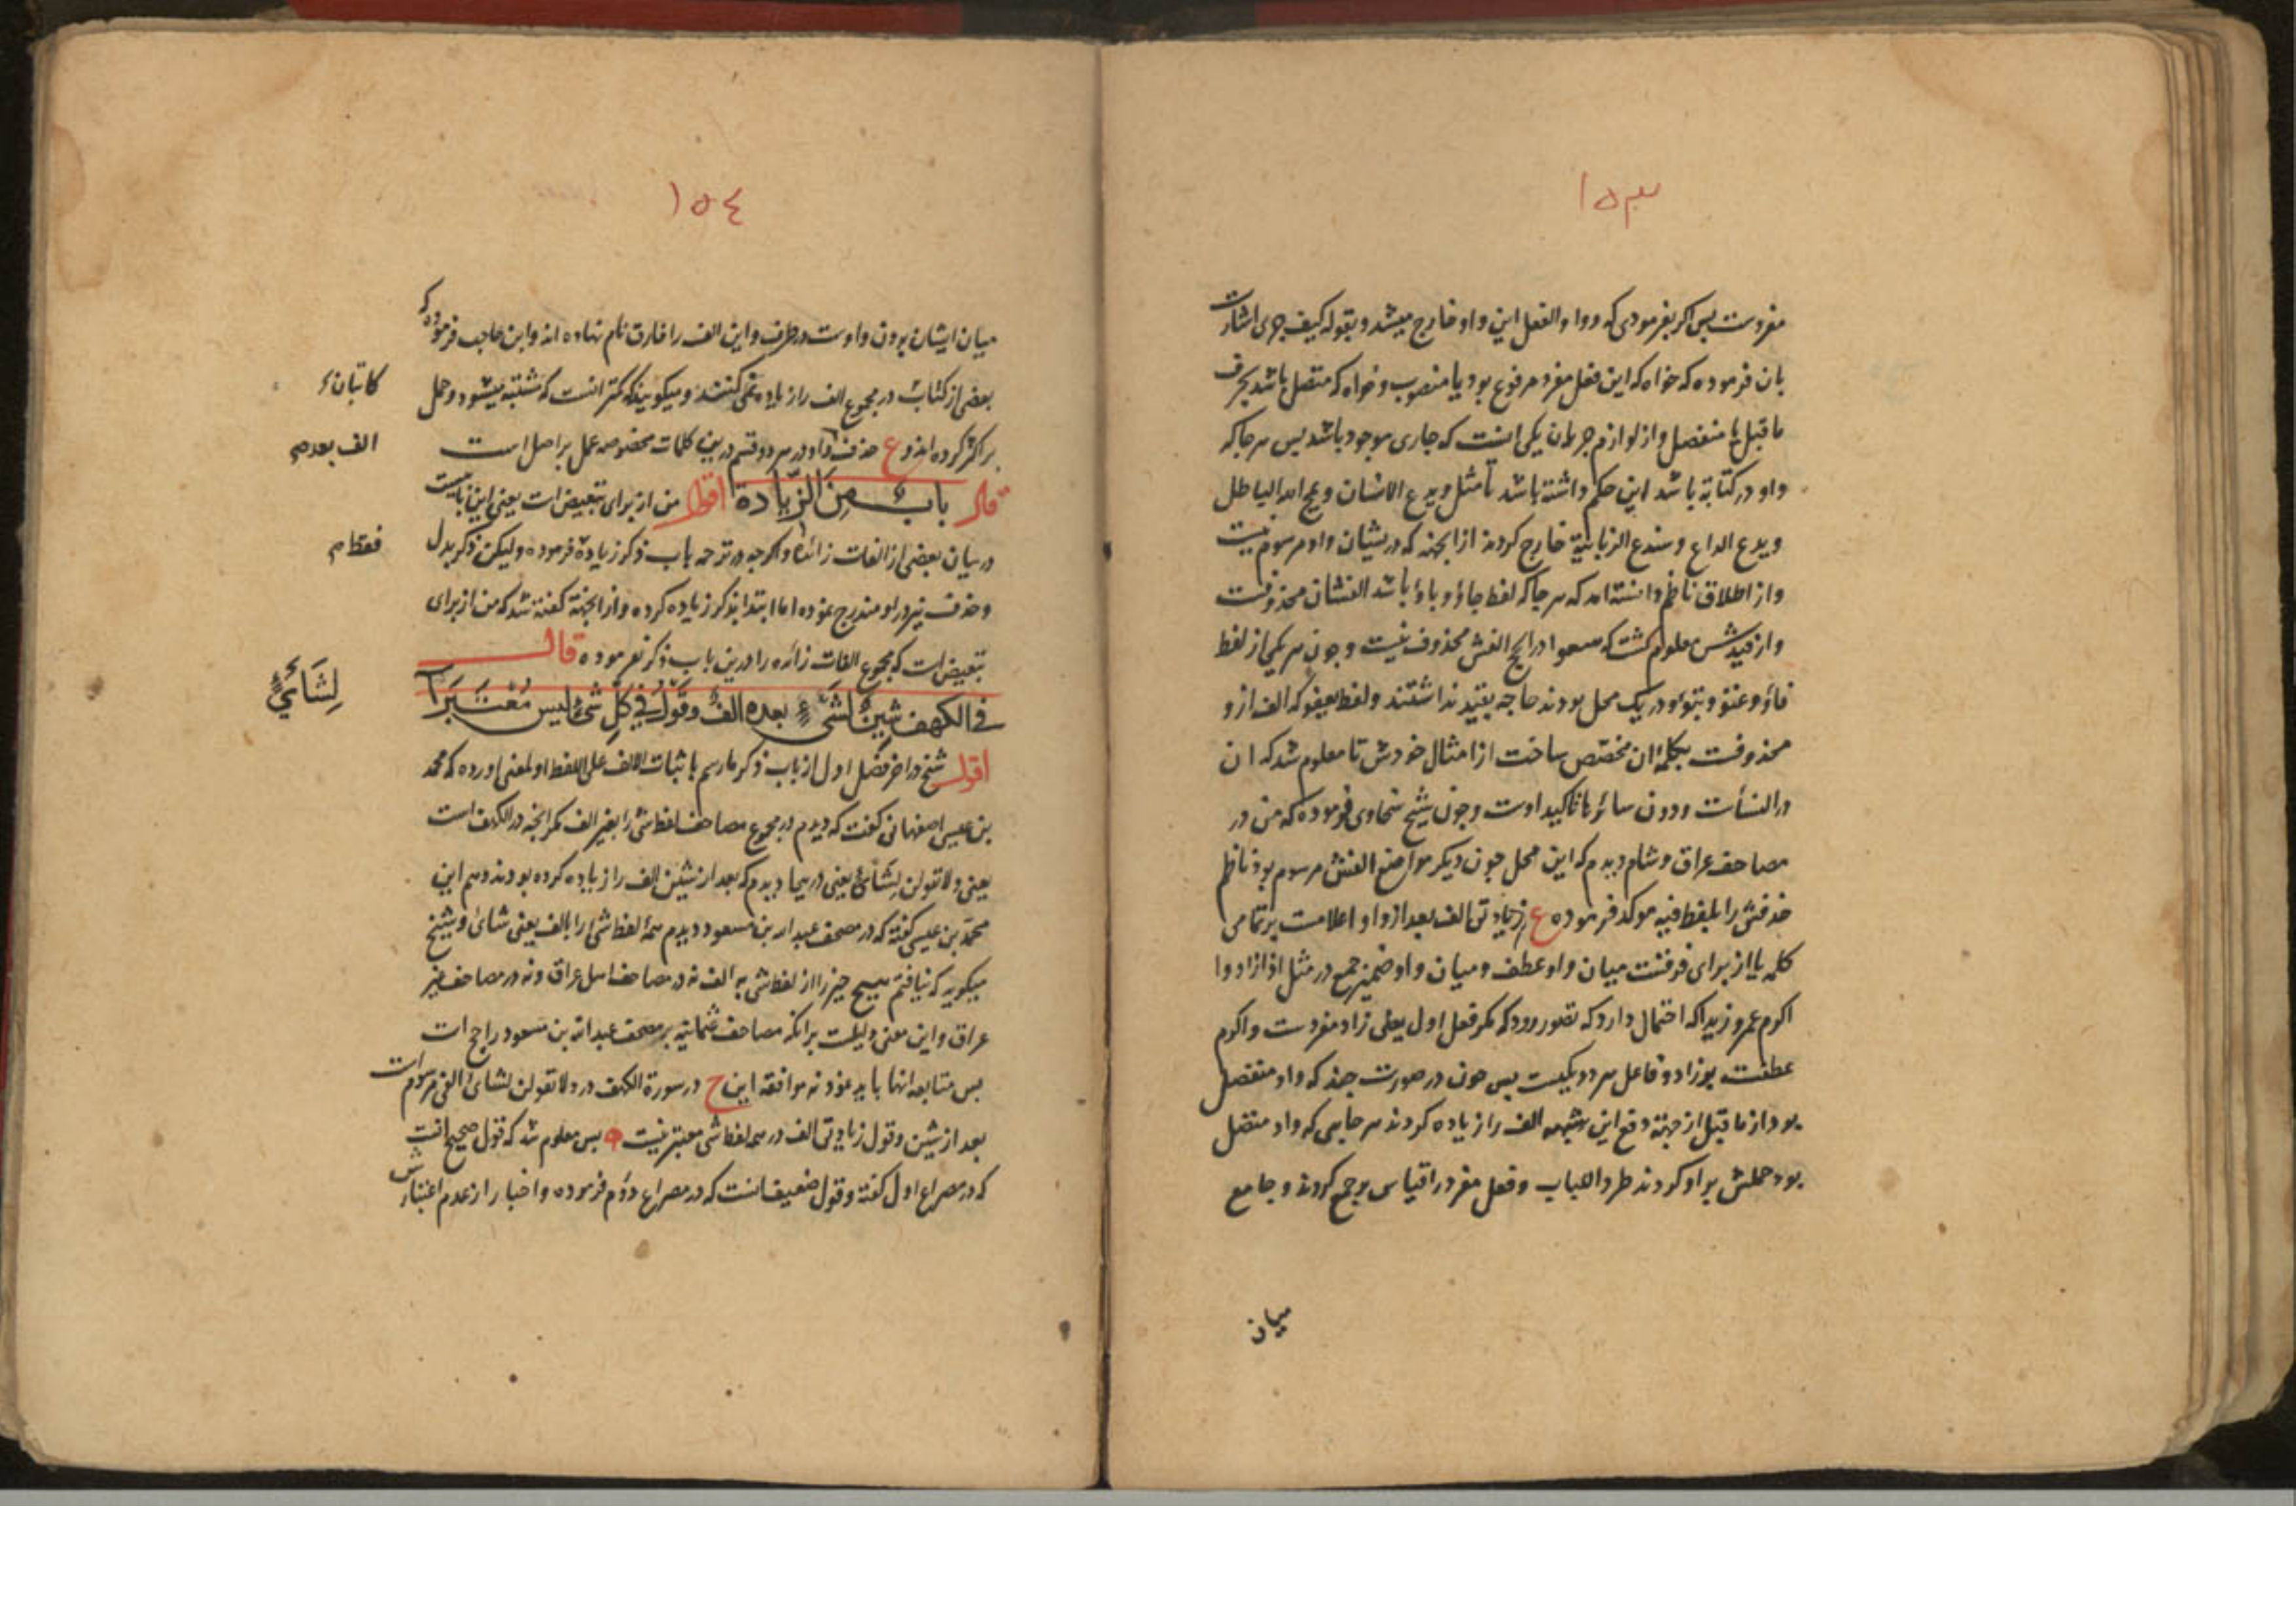 ١٥٣
مفردست پس اگر بفرمودی که و واو الفعل این واو خارج میشد و بقوله کیف جری اشارت
بان فرموده که خواه که این فعل مفرد مرفوع بود یا منصوب و خواه که متصل باشد بحرف
ما قبل یا منفصل و از لوازم جریان یکی اینست که جاری موجود باشد پس هرجا که
واو در کتابة باشد این حکم داشته باشد تا مثل ویدع الانسان ویمح الله الباطل
ویدع الداع و سندع الزبانیة خارج کردند از انجهة که دریشان واو مرسوم نیست
و از اطلاق ناظم دانسته اند که هرجا که لفظ جاؤ و باؤ باشد الفشان محذوفست
و از قیدش معلوم گشت که سعوا در الحج الفش محذوف نیست و چون هر یکی از لفظ
فاؤ و عتو و تبوؤ در یک محل بودند حاجه بقید نداشتند و لفظ یعفو که الف از و
محذوفست بکلمۀ ان مختص ساخت از امثال خودش تا معلوم شد که ان
در النسأت و دون سائرها تاکید اوست و چون شیخ سخاوی فرموده که من در
مصاحف عراق و شام دیدم که این محل چون دیگر مواضع الفش مرسوم بود ناظم
حذفش را بلفظ فیه موکد فرموده ع زیادتی الف بعد از واو اعلامت بر تمامی
کلمه یا از برای فرقتست میان واو عطف و میان واو ضمیر جمع در مثل اذا زادوا
اکرم عمرو زیدا که احتمال دارد که تصور رود که مگر فعل اول یعنی زاد مفردست و اکرم
عطفست بر زاد و فاعل هر دو یکیست پس چون در صورت چند که واو منفصل
بود از ما قبل از جهة دفع این شبهه الف را زیاده کردند هر جایی که واو متصل
بود حملش بر او کردند طردا للباب و فعل مفرد را قیاس بر جمع کردند و جامع
میان
١٥٤
میان ایشان بودن واوست در طرف و این الف را فارق نام نهاده اند و ابن حاجب فرموده که
بعضی از کتاب در مجموع الف را زیاده نمی کنند و میگویند که کمتر انست که مشتبه میشود و حمل
بر اکثر کرده اند و ع حذف واو در هر دو قسم درین کلمات مخصوصه عمل بر اصل است
قال باب من الزیادة اقول من از برای تبعیض است یعنی این بابیست
در بیان بعضی از الفات زائده و اگرچه در ترجمه باب ذکر زیادة فرموده ولیکن ذکر بدل
و حذف نیز در او مندرج نموده اما ابتدا بذکر زیاده کرده و از انجهة گفته شد که من از برای
تبعیض است که مجموع الفات زائده را درین باب ذکر نفرموده قال
فی الکهف شین لشیء بعده الف وقول فی کل شیء لیس معتبرا
اقول شیخ در اخر فصل اول از باب ذکر ما رسم باثبات الالف علی اللفظ او لمعنی اورده که محمد
بن عیسی اصفهانی گفت که دیدم در مجموع مصاحف لفظ شئ را بغیر الف مگر انچه در الکهف است
یعنی ولا تقولن لشائ یعنی در ینجا دیدم که بعد از شین الف را زیاده کرده بودند و هم این
محمد بن عیسی گفته که در مصحف عبد الله بن مسعود دیدم همۀ لفظ شئ را بالف یعنی شائ و شیخ
میگوید که نیافتم هیچ چیز را از لفظ شئ به الف نه در مصاحف اهل عراق و نه در مصاحف غیر
عراق و این معنی دلیلست برانکه مصاحف عثمانیه بر مصحف عبد الله بن مسعود راجح است
پس متابعه انها باید نمود نه موافقه این ح در سورة الکهف در ولا تقولن لشائ الفی مرسوم است
بعد از شین و قول زیادتی الف در همه لفظ شئ معتبر نیست پس معلوم شد که قول صحیح انست
که در مصراع اول گفته و قول ضعیف انست که در مصراع دؤم فرموده و اخبار از عدم اعتبارش
کاتبان
الف بعدم
فقط م
لِشَائْیءٍ